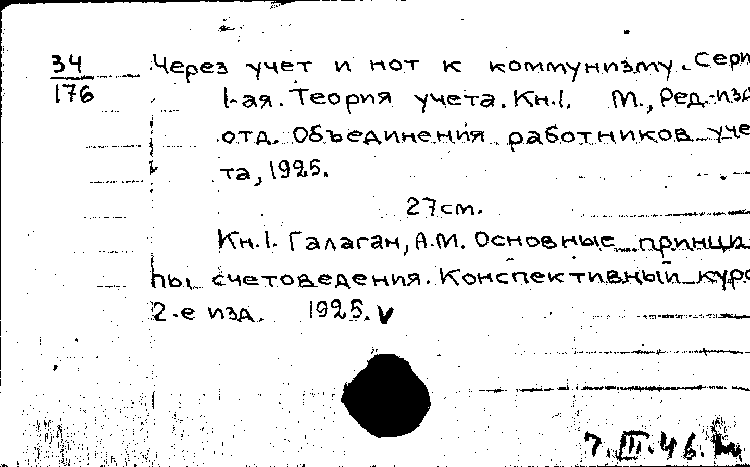 34
176
Через учет и нот к коммунизму. Сери
1-ая. Теория учета. Кн.1. М., Ред.-изд
отд. Объединения работников уче
та, 1925.
27см.
Кн.1. Галаган, А.М. Основные принци
пы счетоведения. Конспективный курс
2-е изд. 1925. V
7.III.46.